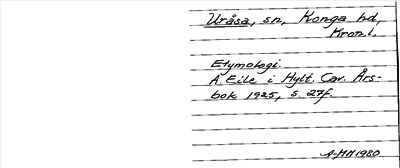 Uråsa, sn, Konga hd,
Kron.l.
Etymologi.
Å. Eile i Hylt. Cav. Års-
bok 1925, s. 27f.
A-MH 1980